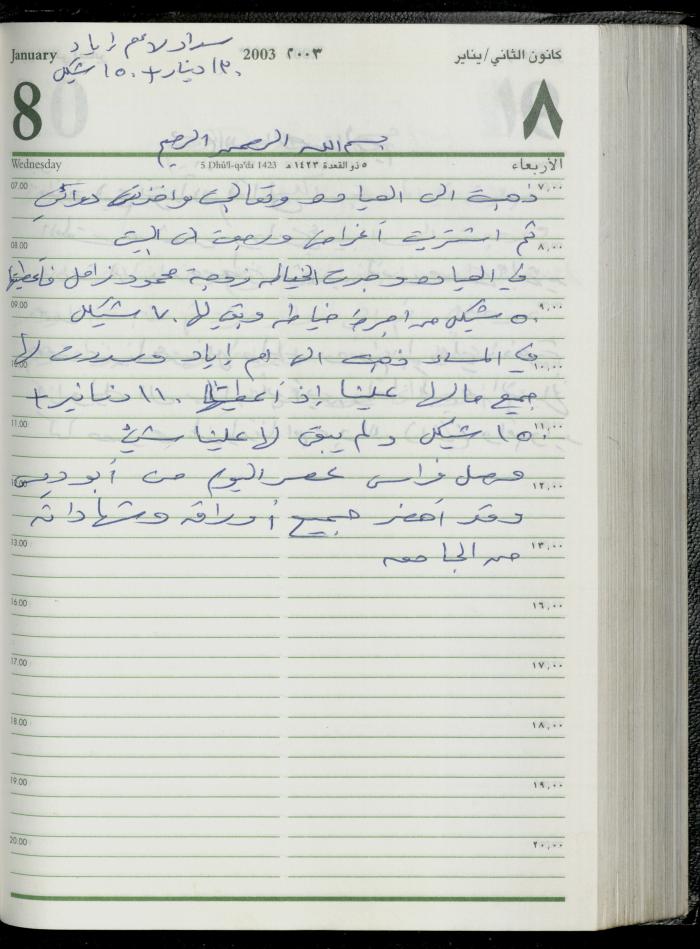 سداد لأم إياد
January 2003 ٢٠٠٣ كانون الثاني/يناير
١٥٠ شيكل
8 ٨
بسم الله الرحمن الرحيم
Wednesday 5 Dhû'l-qa'da 1423 ٥ ذو القعدة ١٤٢٣ هـ الأربعاء
07.00 ٧,٠٠
ذهبت الى العيادة وأخذت دوائي
ثم اشتريت أغراض ورجعت الى البيت
08.00 ٨,٠٠
في العيادة وجدت الخياطه زوجة محمود زامل فأعطيتها
09.00 ٩,٠٠
٥٠ شيكل من اجرة خياطه وبقي لها ٧٠ شيكل
في المساء ذهبت الى ام إياد وسددت لها
10.00 ١٠,٠٠
جميع مالها علينا إذ أعطيتها ١١٠ دنانير +
11.00 ١١,٠٠
١٥٠ شيكل ولم يبق لها علينا شيئ
وصل فراس عصر اليوم من أبو ديس
12.00 ١٢,٠٠
وقد أحضر جميع أوراقه وشهاداته
13.00 ١٣,٠٠
من الجامعه
16.00 ١٦,٠٠
17.00 ١٧,٠٠
18.00 ١٨,٠٠
19.00 ١٩,٠٠
20.00 ٢٠,٠٠